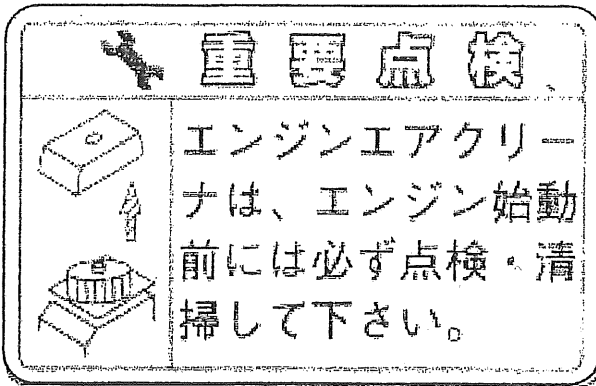 重要点検
エンジンエアクリー
ナは、エンジン始動
前には必ず点検・清
掃して下さい。